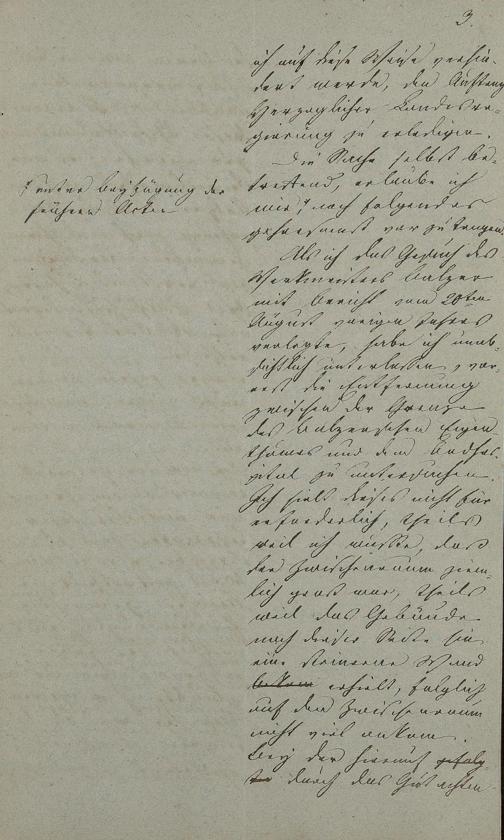 3.
ich auf diese Weise verhin-
dert werde, den Auftrag
Herzoglicher Landesre-
gierung zu erledigen.
Die Sache selbst be-
treffend, erlaube ich
mir, noch folgendes
gehorsamst vorzutragen.
unter Beyfügung der
frühern Acten
Als ich das Gesuch des
Werkmeisters Balzer
mit Bericht vom 20ten
August vorigen Jahres
vorlegte, habe ich unab-
sichtlich unterlassen, vor-
erst die Entfernung
zwischen der Grenze
des Balzerschen Eigen-
thumes und dem Badhos-
pital zu untersuchen.
Ich hielt dieses nicht für
erforderlich, theils
weil ich wusste, dass
der Zwischenraum ziem-
lich gross war, theils
weil das Gebäude
nach dieser Seite hin
eine steinerne Wand
bekam erhielt, folglich
auf den Zwischenraum
nicht viel ankam.
Bey der hierauf erfolg-
ten durch das Gutachten